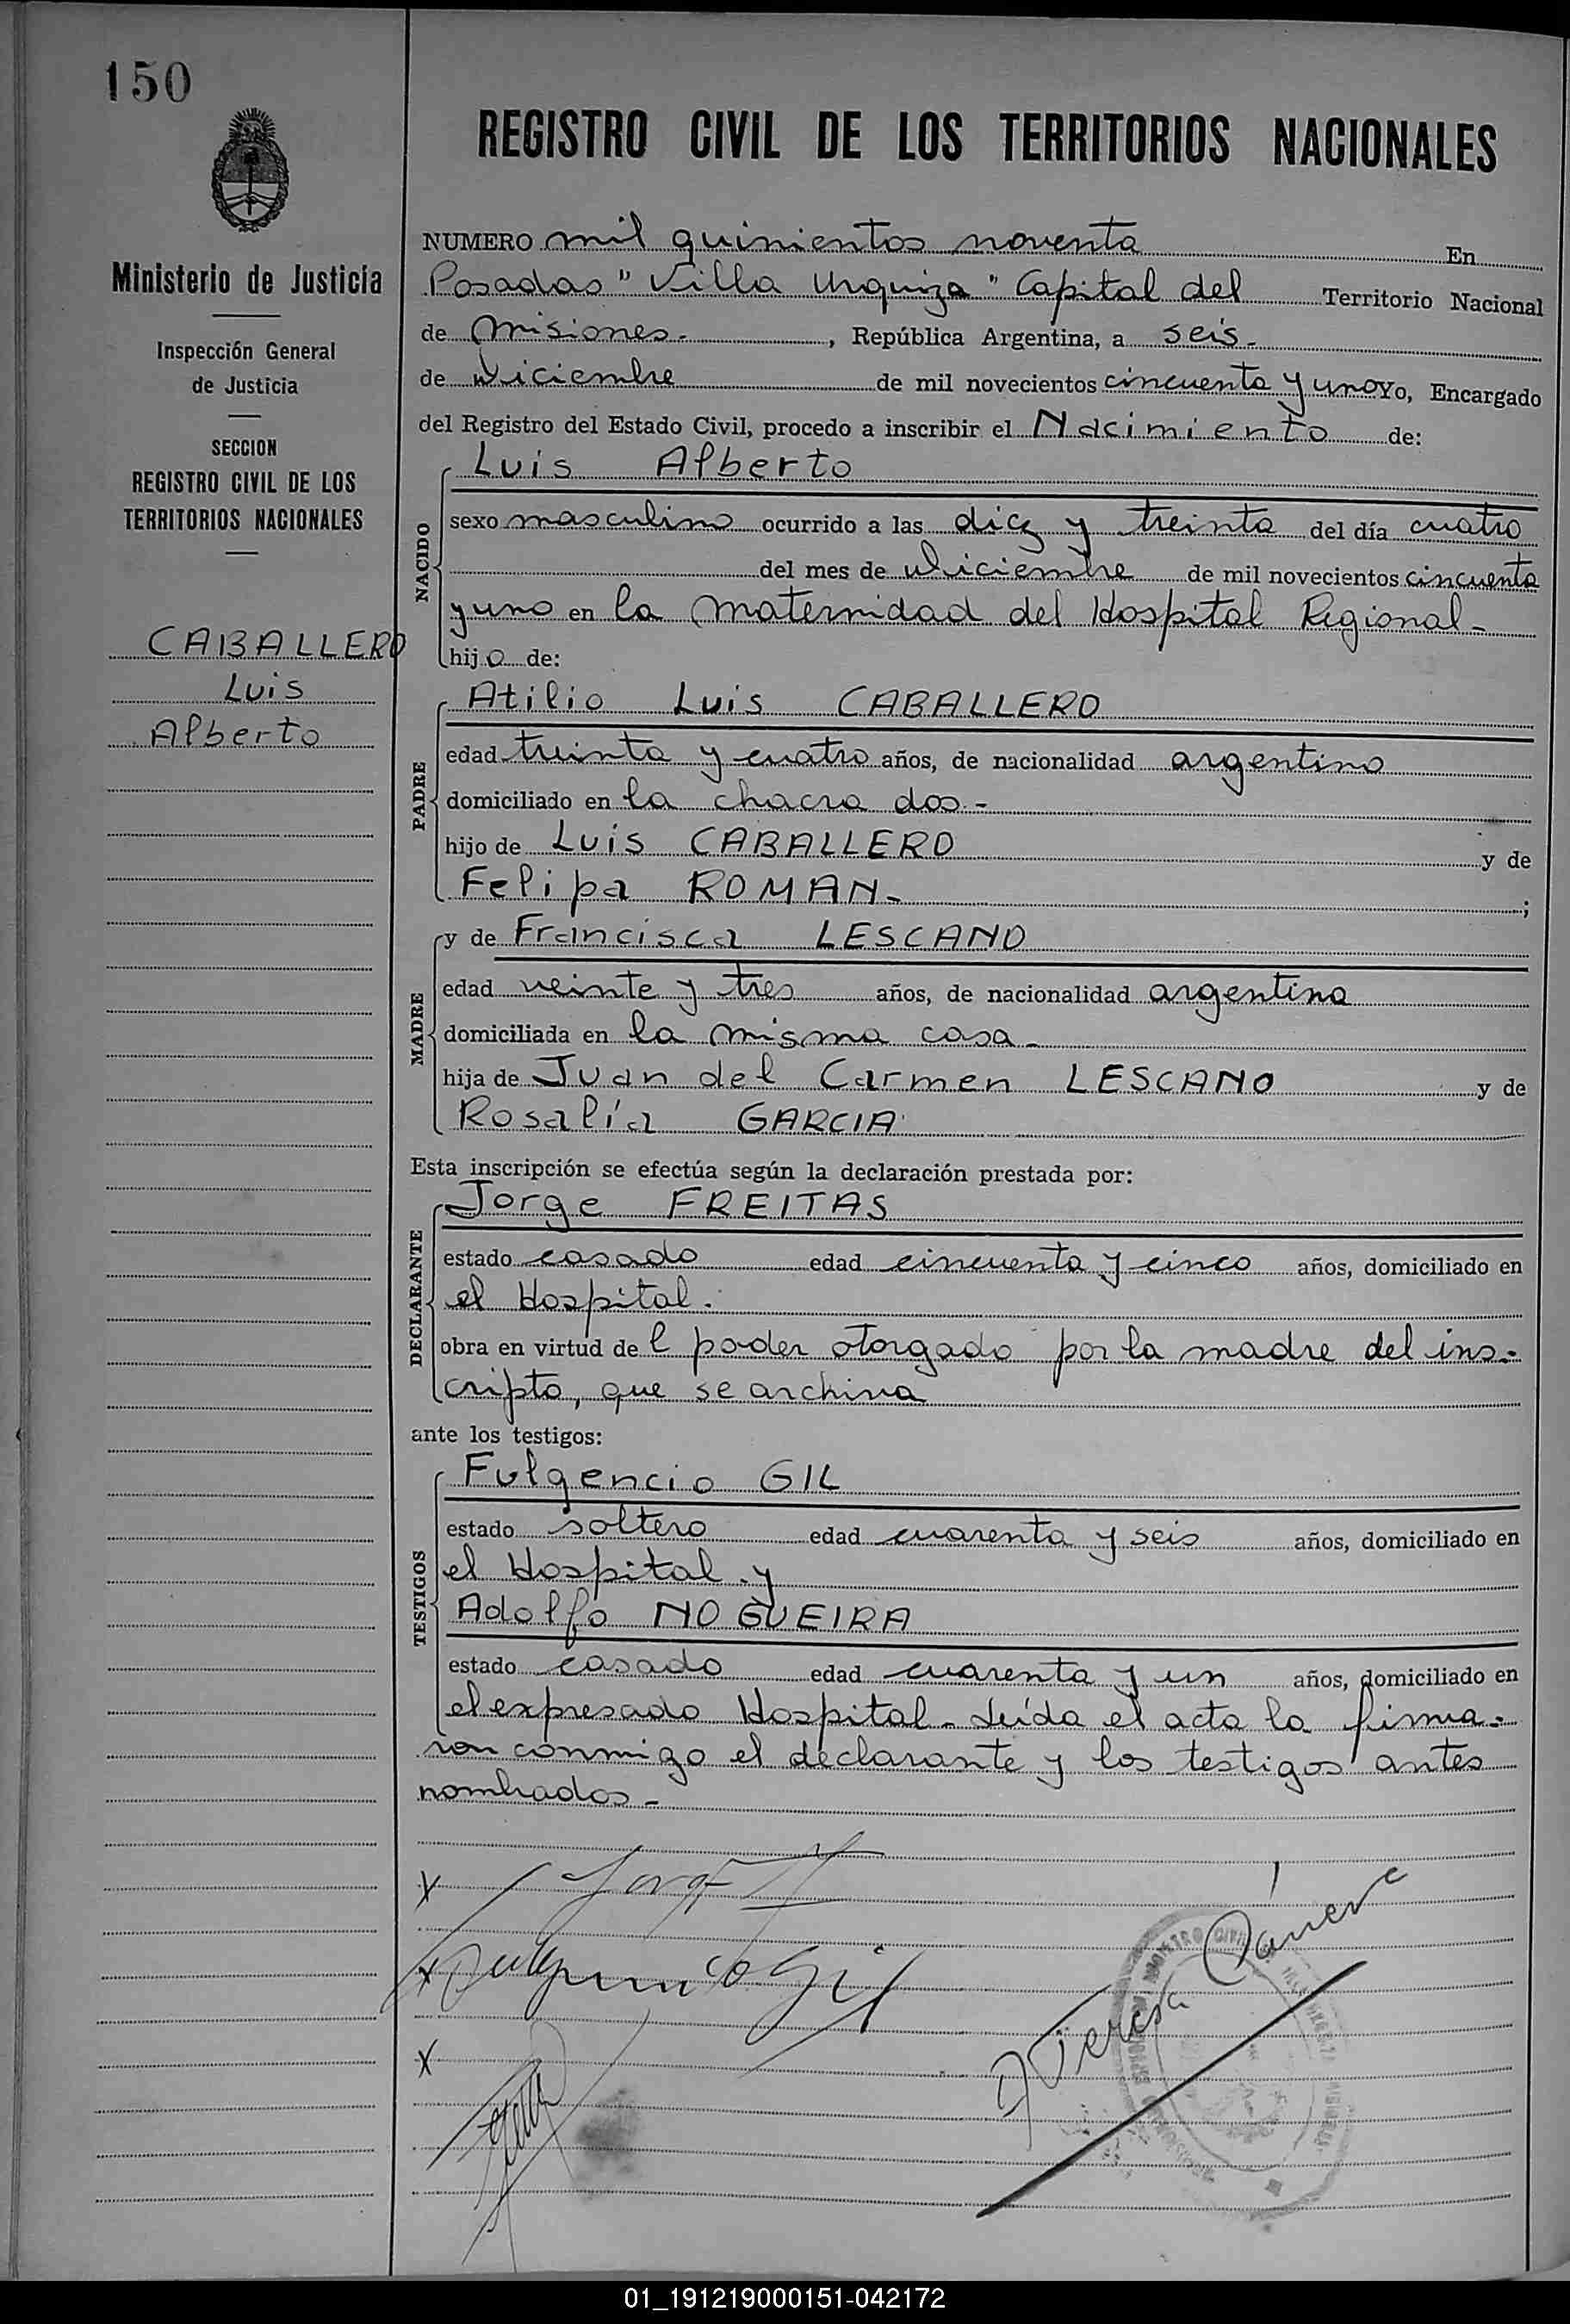 150
Ministerio de Justicia
Inspección General
de Justicia
SECCION
REGISTRO CIVIL DE LOS
TERRITORIOS NACIONALES
CABALLERO
Luis
Alberto
REGISTRO CIVIL DE LOS TERRITORIOS NACIONALES
NUMERO mil quinientos noventa En
Posadas "Villa Urquiza" Capital del Territorio Nacional
de Misiones.-, República Argentina, a seis.-
de Diciembre de mil novecientos cincuenta y uno Yo, Encargado
del Registro del Estado Civil, procedo a inscribir el Nacimiento de:
NACIDO
Luis Alberto
sexo masculino ocurrido a las diez y treinta del día cuatro
del mes de Diciembre de mil novecientos cincuenta
y uno en la maternidad del Hospital Regional-
hijo de:
PADRE
Atilio Luis CABALLERO
edad treinta y cuatro años, de nacionalidad argentino
domiciliado en la chacra dos.-
hijo de Luis CABALLERO y de
Felipa ROMAN- ;
MADRE
y de Francisca LESCANO
edad veinte y tres años, de nacionalidad argentina
domiciliada en la misma casa-
hija de Juan del Carmen LESCANO y de
Rosalía GARCIA
Esta inscripción se efectúa según la declaración prestada por:
DECLARANTE
Jorge FREITAS
estado casado edad cincuenta y cinco años, domiciliado en
el Hospital.
obra en virtud del poder otorgado por la madre del ins-
cripto, que se archiva
ante los testigos:
TESTIGOS
Fulgencio GIL
estado soltero edad cuarenta y seis años, domiciliado en
el Hospital y
Adolfo NOGUEIRA
estado casado edad cuarenta y un años, domiciliado en
el expresado Hospital- Leída el acta la firma-
ron conmigo el declarante y los testigos antes
nombrados-
x Jorge
x Fulgencio Gil
x
Teresa
REGISTRO CIVIL
01_191219000151-042172